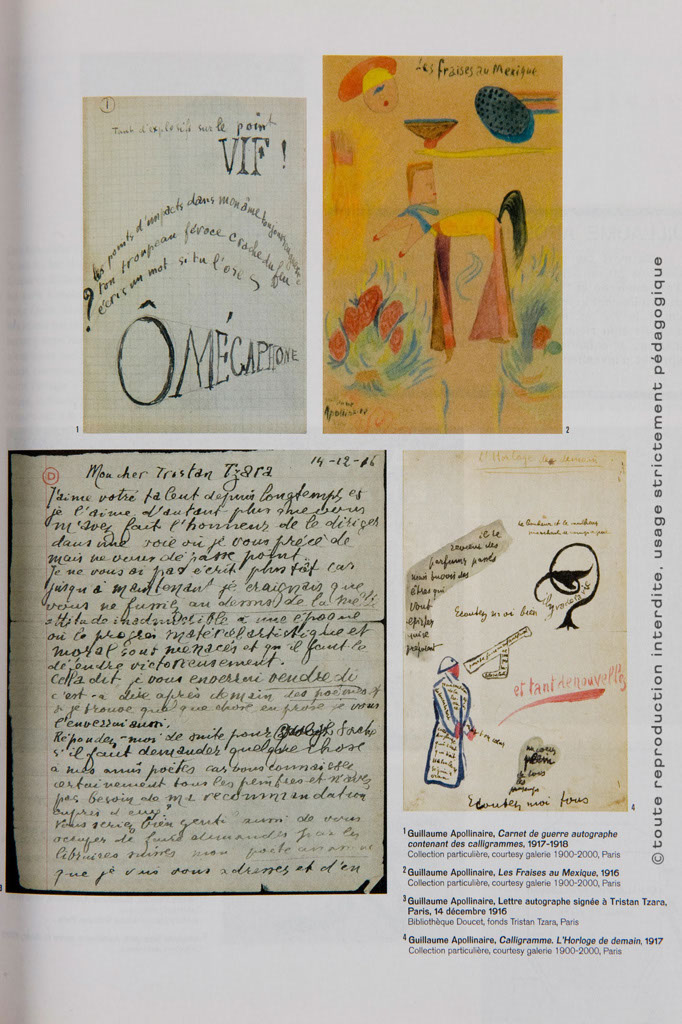 1
Tant d'explosifs sur le point
VIF !
des points d'impacts dans mon âme toujours en guerre
ton troupeau féroce crache du feu
écris un mot si tu l'oses
?
ÔMÉGAPHONE
1
Les fraises au Mexique
Apollinaire
2
D
14-12-16
Mon cher Tristan Tzara
J'aime votre talent depuis longtemps et
je l'aime d'autant plus que vous
m'avez fait l'honneur de le diriger
dans une voie où je vous précède
mais ne vous dépasse point.
Je ne vous ai pas écrit plus tôt car
jusqu'à maintenant je craignais que
vous ne fussiez au dessus de la mêlée
attitude inadmissible à une époque
où le progrès matériel artistique et
moral sont menacés et qu'il faut le
défendre victorieusement.
Cela dit je vous enverrai vendredi
c'est-à dire après demain des poèmes et
si je trouve quelque chose en prose je vous
l'enverrai aussi.
Répondez-moi de suite pour
s'il faut demander quelque chose
à mes amis poètes car vous connaissez
certainement tous les peintres et n'avez
pas besoin de ma recommandation
auprès d'eux.
Vous seriez bien gentil aussi de vous
occuper de faire demander par les
libraires suisses mon poète assassiné
que je vais vous adresser et d'en
3
L'Horloge de demain
Le bonheur et le malheur
parfums
Ecoutez moi bien
et tant de nouvelles
Ecoutez moi tous
4
1 Guillaume Apollinaire, Carnet de guerre autographe
contenant des calligrammes, 1917-1918
Collection particulière, courtesy galerie 1900-2000, Paris
2 Guillaume Apollinaire, Les Fraises au Mexique, 1916
Collection particulière, courtesy galerie 1900-2000, Paris
3 Guillaume Apollinaire, Lettre autographe signée à Tristan Tzara,
Paris, 14 décembre 1916
Bibliothèque Doucet, fonds Tristan Tzara, Paris
4 Guillaume Apollinaire, Calligramme. L'Horloge de demain, 1917
Collection particulière, courtesy galerie 1900-2000, Paris
© toute reproduction interdite, usage strictement pédagogique